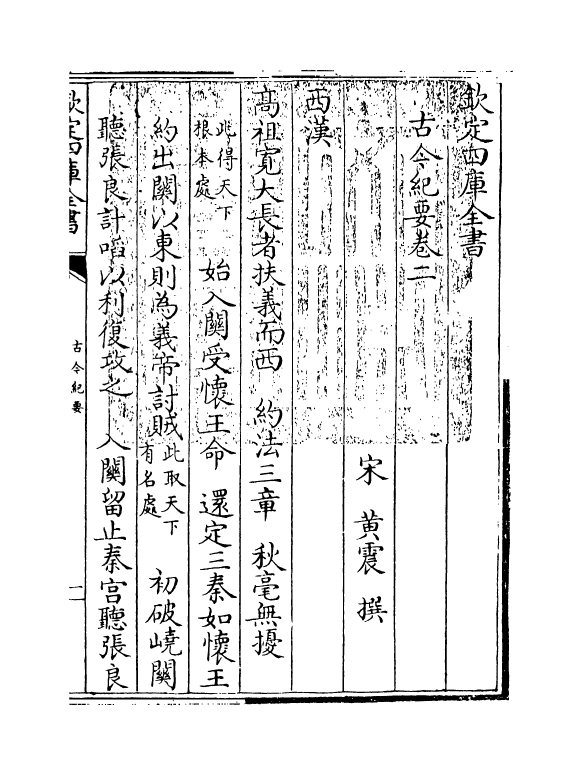 欽定四庫全書
古今紀要卷二
宋 黄震 撰
西漢
髙祖寛大長者扶義而西 約法三章 秋毫無擾
此得天下根本處 始入闗受懷王命 還定三秦如懷王
約出闗以東則為義帝討賊此取天下有名處 初破嶢闗
聽張良計啗以利復攻之 入闗留止秦宫聽張良
欽定四庫全書
古今紀要
一